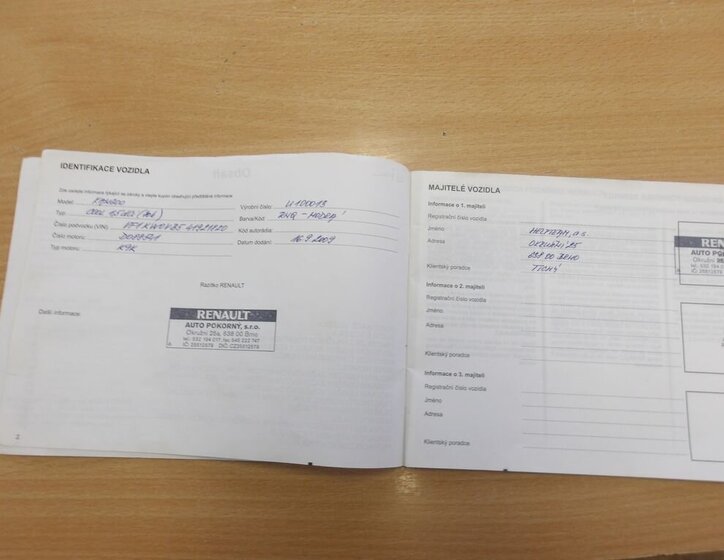 IDENTIFIKACE VOZIDLA
Zde zapište informace týkající se záruky a vlepte kupón obsahující předběžné informace
Model: KANGOO
Typ:
Číslo podvozku (VIN):
Číslo motoru:
Typ motoru: K9K
Výrobní číslo: U100013
Barva/Kód:
Kód autorádia:
Datum dodání: 16.9.2009
Razítko RENAULT
Další informace:
RENAULT
AUTO POKORNÝ, s.r.o.
Okružní 25a, 638 00 Brno
tel.: 532 194 017, fax: 545 222 747
IČ: 25512579 DIČ: CZ25512579
2
MAJITELÉ VOZIDLA
Informace o 1. majiteli
Registrační číslo vozidla
Jméno
Adresa
638 00 BRNO
Klientský poradce TICHÝ
Informace o 2. majiteli
Registrační číslo vozidla
Jméno
Adresa
Klientský poradce
Informace o 3. majiteli
Registrační číslo vozidla
Jméno
Adresa
Klientský poradce
RENAULT